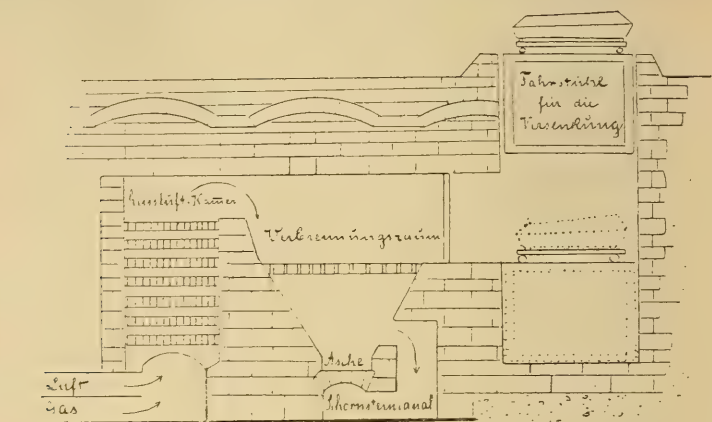 Fahrstuhl
für die
Versenkung
Heissluft-Kammer
Verbrennungsraum
Asche
Luft
Gas
Schornsteinkanal